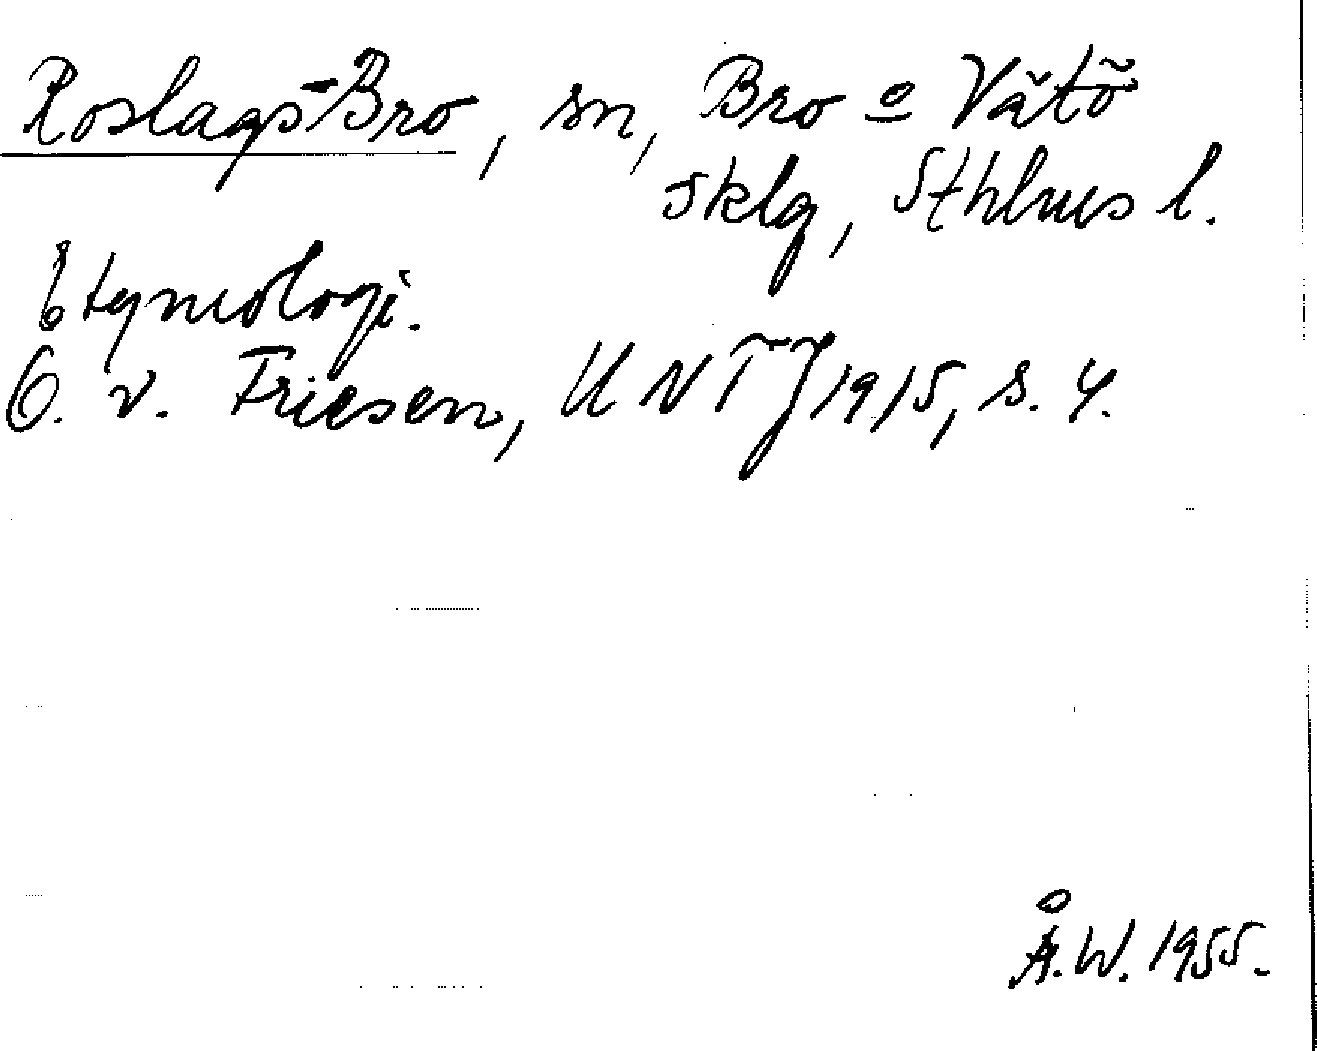 Roslags-Bro, sn, Bro o Vätö
sklg, Sthlms l.
Etymologi.
O. v. Friesen, UNTJ 1915, s. 4.
Å.W. 1955.